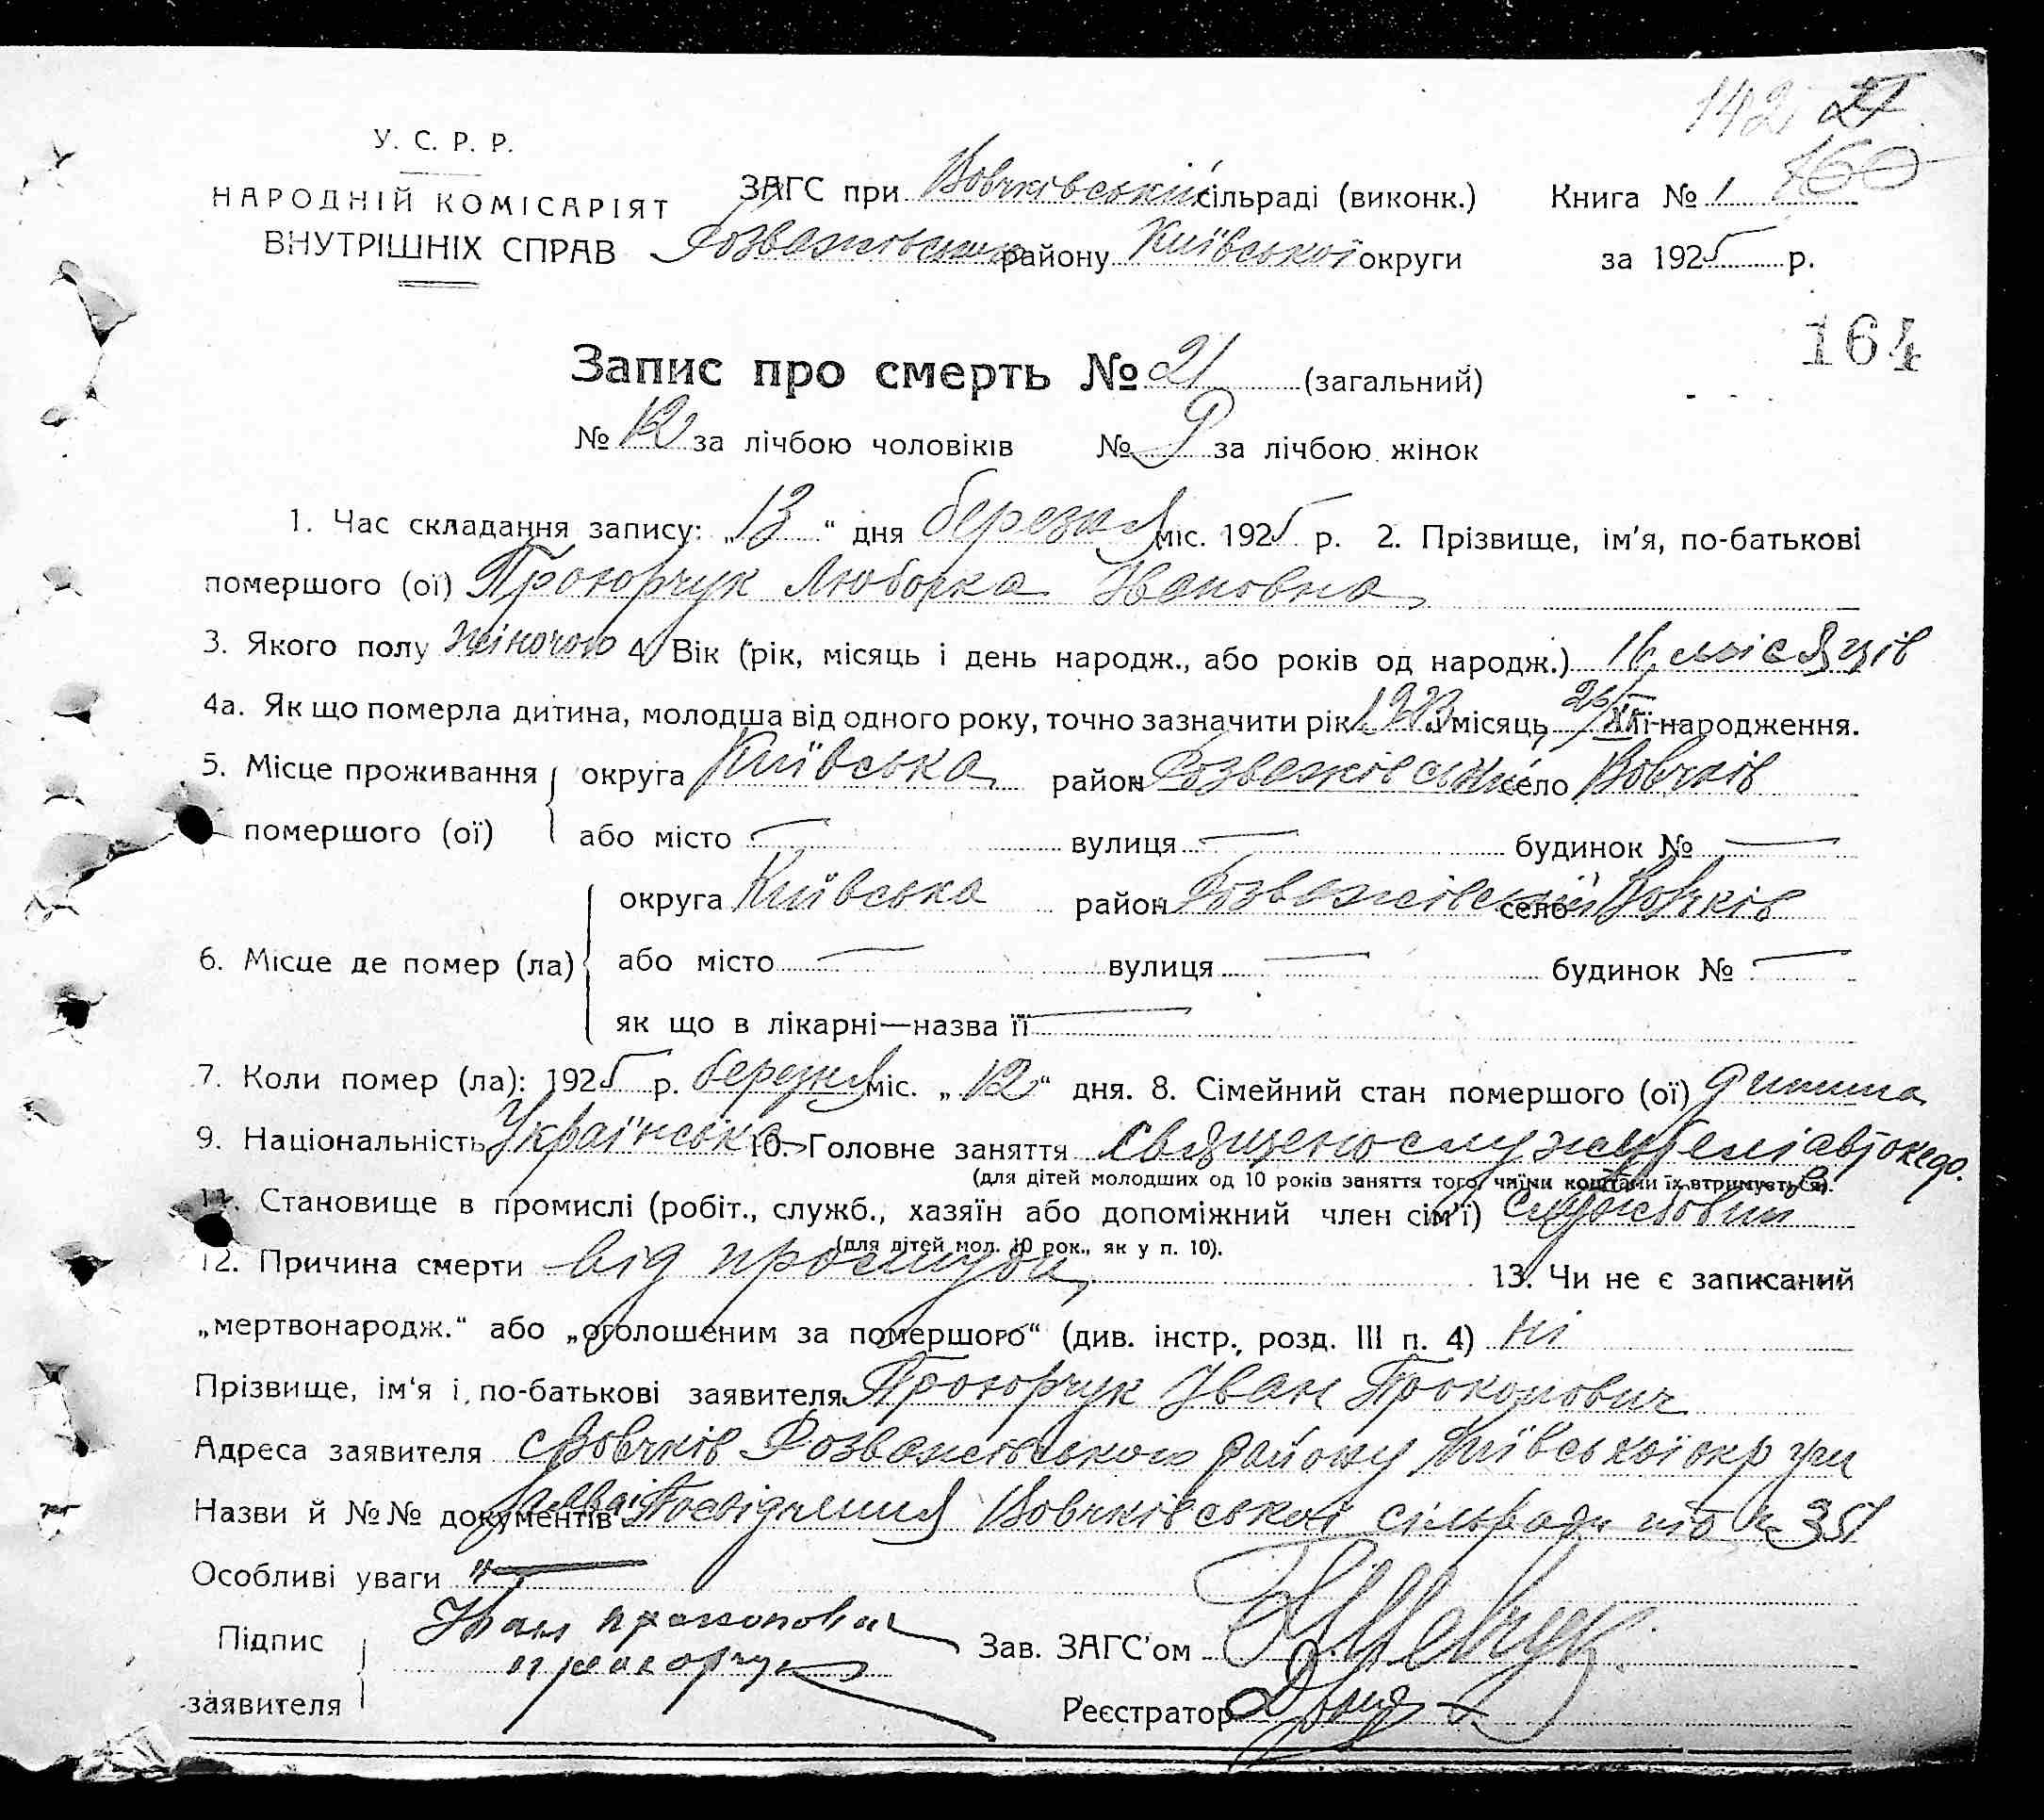 142 21
160
У. С. Р. Р.
НАРОДНІЙ КОМІСАРІЯТ
ВНУТРІШНІХ СПРАВ
ЗАГС при Вовчківській сільраді (виконк.) Книга № 1
Розважівського району Київської округи за 1925 р.
164
Запис про смерть № 21 (загальний)
№ 12 за лічбою чоловіків № 9 за лічбою жінок
1. Час складання запису: „13“ дня березня міс. 1925 р. 2. Прізвище, ім'я, по-батькові
помершого (ої) Івановна
3. Якого полу жіночого 4. Вік (рік, місяць і день народж., або років од народж.) 16 місяців
4а. Як що померла дитина, молодша від одного року, точно зазначити рік 1923 місяць її народження.
5. Місце проживання помершого (ої) округа Київська район Розважівський село Вовчків
або місто — вулиця — будинок № —
6. Місце де помер (ла) округа Київська район Розважівський село Вовчків
або місто — вулиця — будинок № —
як що в лікарні—назва її —
7. Коли помер (ла): 1925 р. березня міс. „12“ дня. 8. Сімейний стан помершого (ої) дитина
9. Національність Українська 10. Головне заняття
(для дітей молодших од 10 років заняття того, чиїми коштами їх втримується).
11. Становище в промислі (робіт., служб., хазяїн або допоміжний член сім'ї)
(для дітей мол. 10 рок., як у п. 10).
12. Причина смерти від простуди 13. Чи не є записаний
„мертвонародж.“ або „оголошеним за помершого“ (див. інстр., розд. III п. 4) ні
Прізвище, ім'я і по-батькові заявителя Іван Прокопович
Адреса заявителя с Вовчків Розважівського району Київської округи
Назви й №№ документів Посвідчення Вовчківської сільради № 351
Особливі уваги —
Підпис заявителя Іван
Зав. ЗАГС'ом Шевчук
Реєстратор